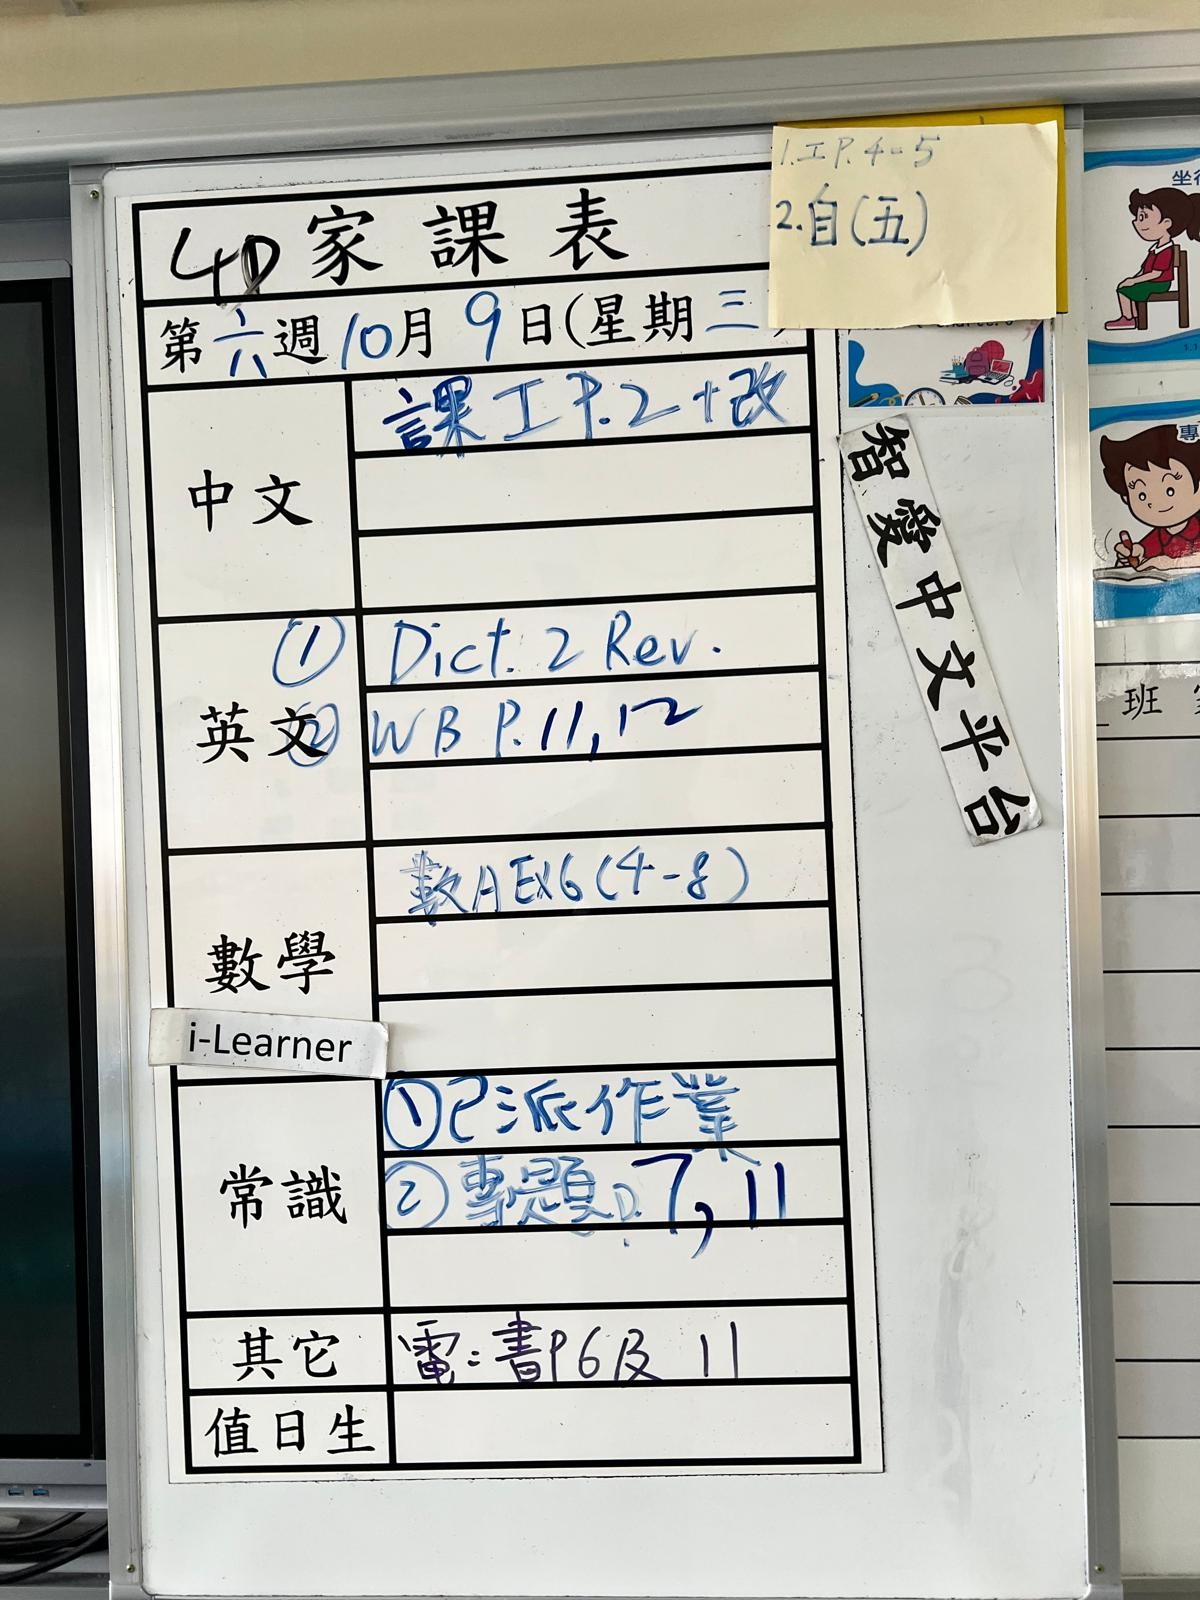 4D 家課表
第六週10月9日(星期三)
1.工P.4-5
2.自(五)
中文
課工P.2+改
英文
① Dict. 2 Rev.
② WB P.11,12
數學
數A EX6(4-8)
i-Learner
常識
①已派作業
②專題P.7,11
其它
電:書P6及 11
值日生
智愛中文平台
坐
專
班